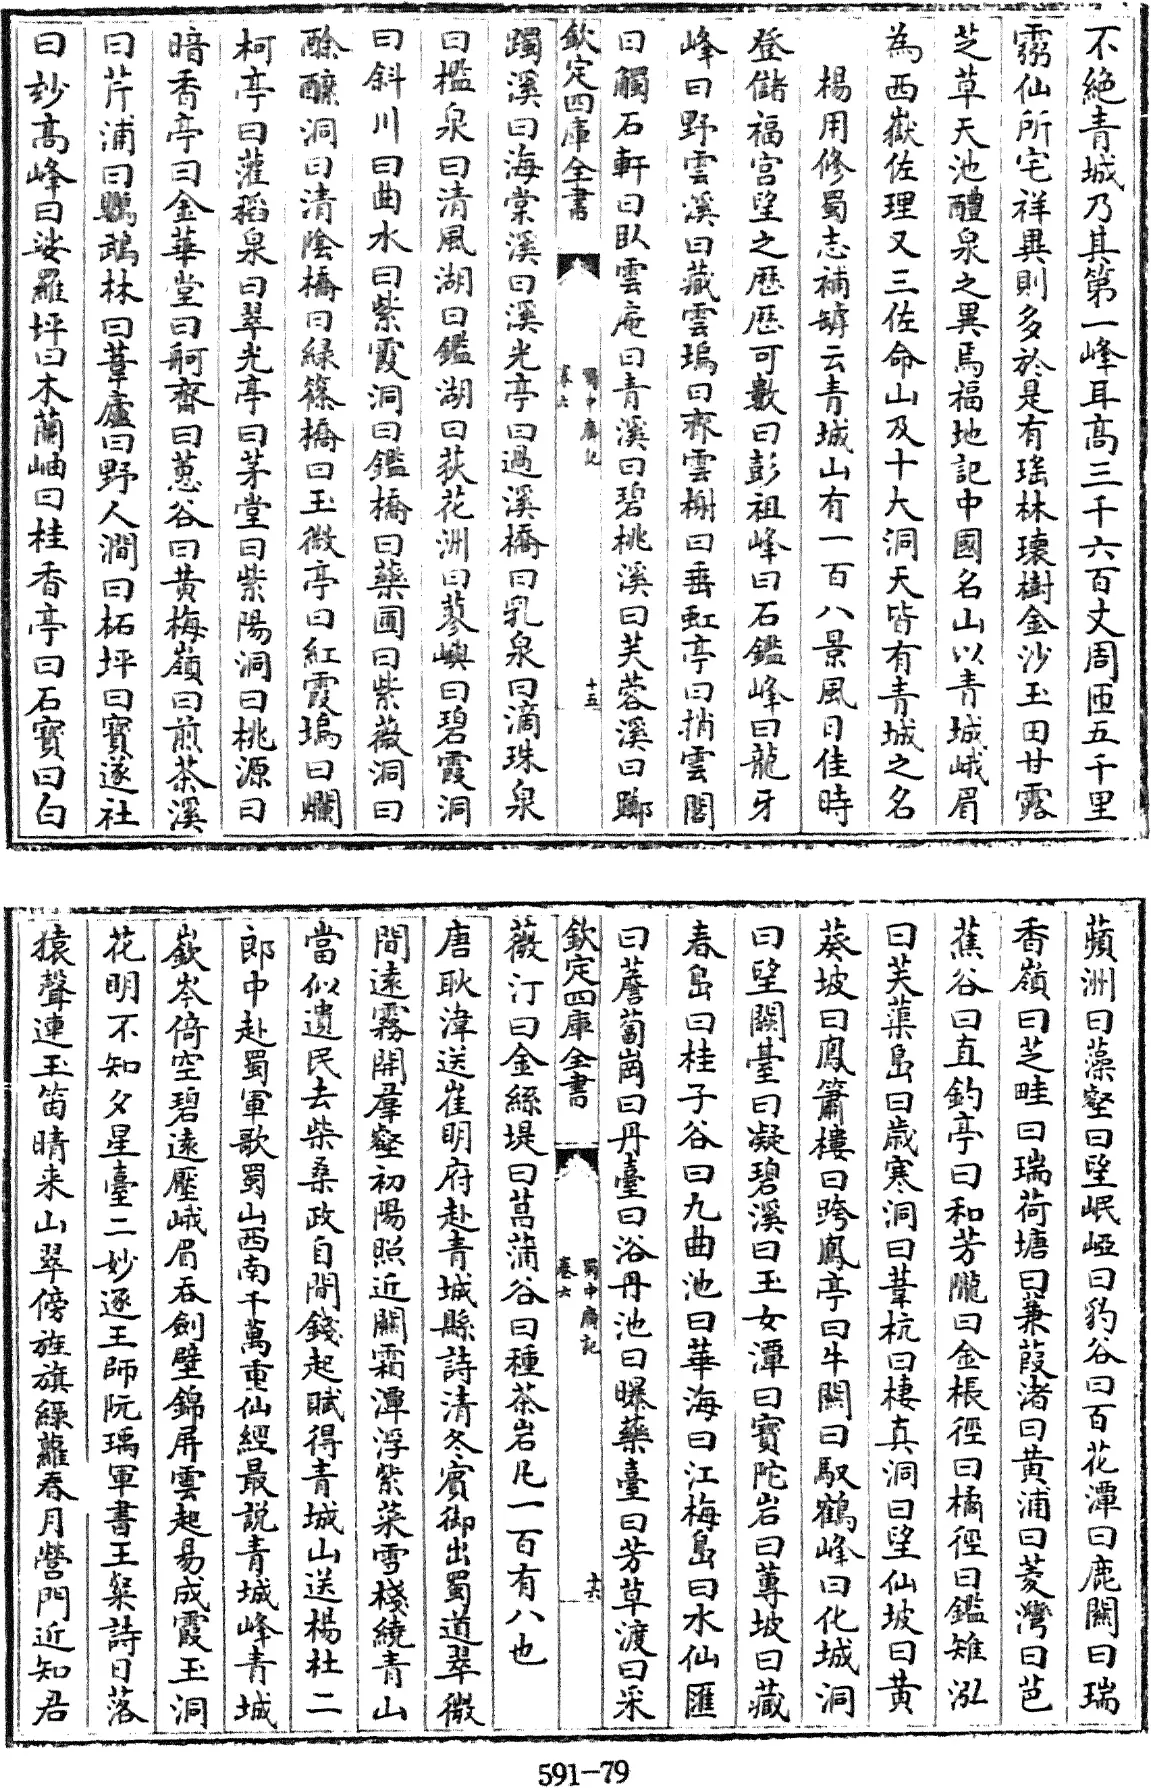 不絶青城乃其第一峰耳高三千六百丈周匝五千里
靈仙所宅祥異則多於是有瑶林瓌樹金沙玉田甘露
芝草天池醴泉之異焉福地記中國名山以青城峨眉
為西嶽佐理又三佐命山及十大洞天皆有青城之名
楊用修蜀志補罅云青城山有一百八景風日佳時
登儲福宫望之歴歴可數曰彭祖峰曰石鑑峰曰龍牙
峰曰野雲溪曰藏雲塢曰齊雲榭曰垂虹亭曰捎雲閣
曰觸石軒曰臥雲庵曰青溪曰碧桃溪曰芙蓉溪曰躑
欽定四庫全書
蜀中廣記
卷六
十五
躅溪曰海棠溪曰溪光亭曰過溪橋曰乳泉曰滴珠泉
曰檻泉曰清風湖曰鑑湖曰荻花洲曰蓼嶼曰碧霞洞
曰斜川曰曲水曰紫霞洞曰鑑橋曰藥圃曰紫薇洞曰
酴醿洞曰清陰橋曰緑篠橋曰玉微亭曰紅霞塢曰爛
柯亭曰灌稻泉曰翠光亭曰茅堂曰紫陽洞曰桃源曰
暗香亭曰金華堂曰舸齋曰蔥谷曰黄梅嶺曰煎茶溪
曰芹浦曰鸚鵡林曰葦廬曰野人澗曰柘坪曰賓遂社
曰妙高峰曰娑羅坪曰木蘭岫曰桂香亭曰石寳曰白
蘋洲曰藻壑曰望岷峘曰豹谷曰百花潭曰鹿關曰瑞
香嶺曰芝畦曰瑞荷塘曰蒹葭渚曰黄浦曰菱灣曰芭
蕉谷曰直釣亭曰和芳隴曰金棖徑曰橘徑曰鑑雉泓
曰芙蕖島曰歳寒洞曰葦杭曰棲真洞曰望仙坡曰黄
葵坡曰鳳簫樓曰跨鳳亭曰牛關曰馭鶴峰曰化城洞
曰望闕臺曰凝碧溪曰玉女潭曰寳陀岩曰蓴坡曰藏
春島曰桂子谷曰九曲池曰華海曰江梅島曰水仙匯
曰薝蔔崗曰丹臺曰浴丹池曰曝藥臺曰芳草渡曰采
欽定四庫全書
蜀中廣記
卷六
十六
薇汀曰金絲堤曰菖蒲谷曰種茶岩凡一百有八也
唐耿湋送崔明府赴青城縣詩清冬賓御出蜀道翠微
間遠霧開羣壑初陽照近關霜潭浮紫菜雪棧繞青山
當似遺民去柴桑政自閒錢起賦得青城山送楊杜二
郎中赴蜀軍歌蜀山西南千萬重仙經最説青城峰青城
嶔岑倚空碧遠壓峨眉吞劍壁錦屏雲起易成霞玉洞
花明不知夕星臺二妙逐王師阮瑀軍書王粲詩日落
猿聲連玉笛晴来山翠傍旌旗綠蘿春月營門近知君
591-79